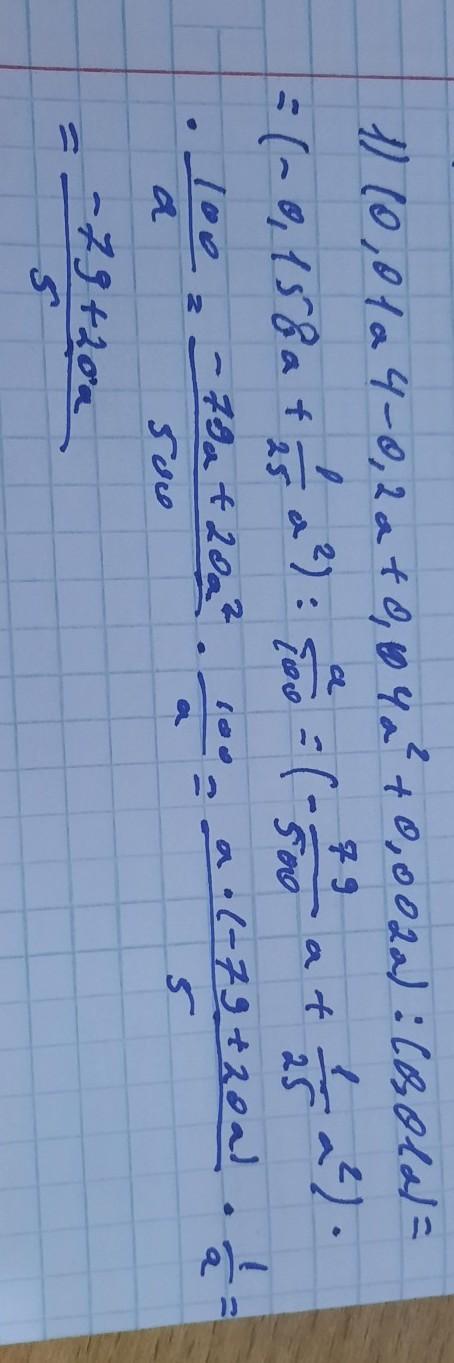 1) (0,01a4-0,2a+0,04a²+0,002a):(0,01a)=
=(-0,158a+\frac{1}{25}a²):\frac{a}{100}=(-\frac{79}{500}a+\frac{1}{25}a²)·
·\frac{100}{a}=\frac{-79a+20a²}{500}·\frac{100}{a}=\frac{a·(-79+20a)}{5}·\frac{1}{a}=
=\frac{-79+20a}{5}